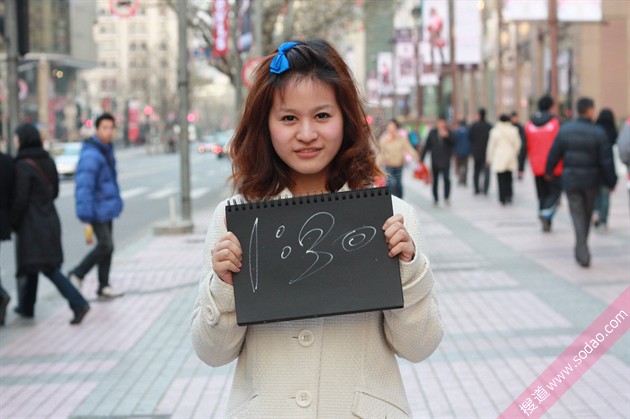 1:30
搜道 www.sodao.com